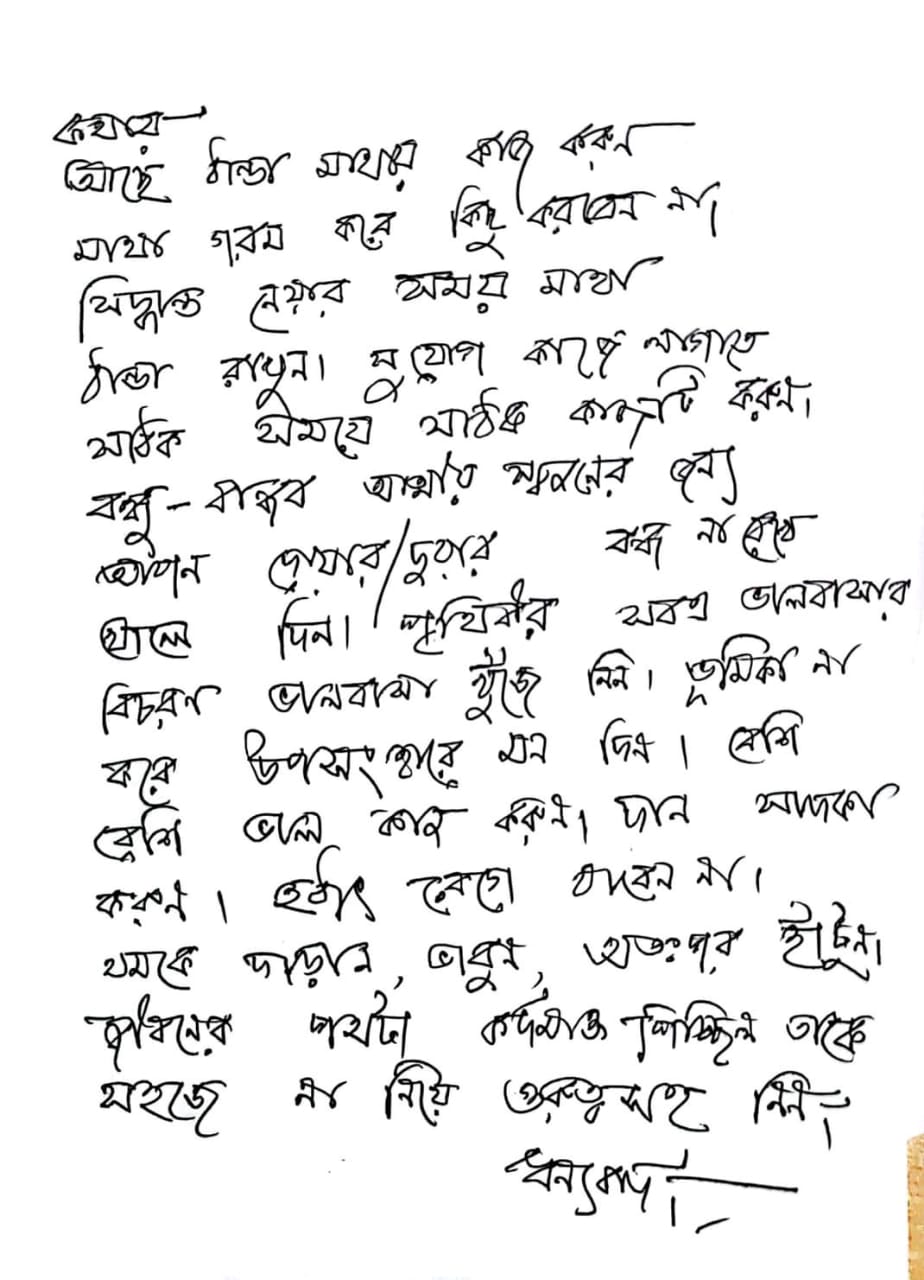 কথায়
আছে ঠান্ডা মাথায় কাজ করুন
মাথা গরম করে কিছু করবেন না।
সিদ্ধান্ত নেয়ার সময় মাথা
ঠান্ডা রাখুন। সুযোগ কাজে লাগাতে
সঠিক সময়ে সঠিক কাজটি করুন।
বন্ধু-বান্ধব আত্মীয় স্বজনের জন্য
আপন দোয়ার/দুয়ার বন্ধ না রেখে
খুলে দিন। পৃথিবীর সবত্র ভালবাসার
বিচরণ ভালবাসা খুঁজে নিন। ভূমিকা না
করে উপসংহারে মন দিন। বেশি
বেশি ভাল কাজ করুন। দান সাদকা
করুন। হঠাৎ রেগে যাবেন না।
থমকে দাড়ান, ভাবুন, অতঃপর হাঁটুন।
জীবনের পথটা কর্দমাক্ত পিচ্ছিল তাকে
সহজে না নিয়ে গুরুত্বসহ নিন।
ধন্যবাদ।